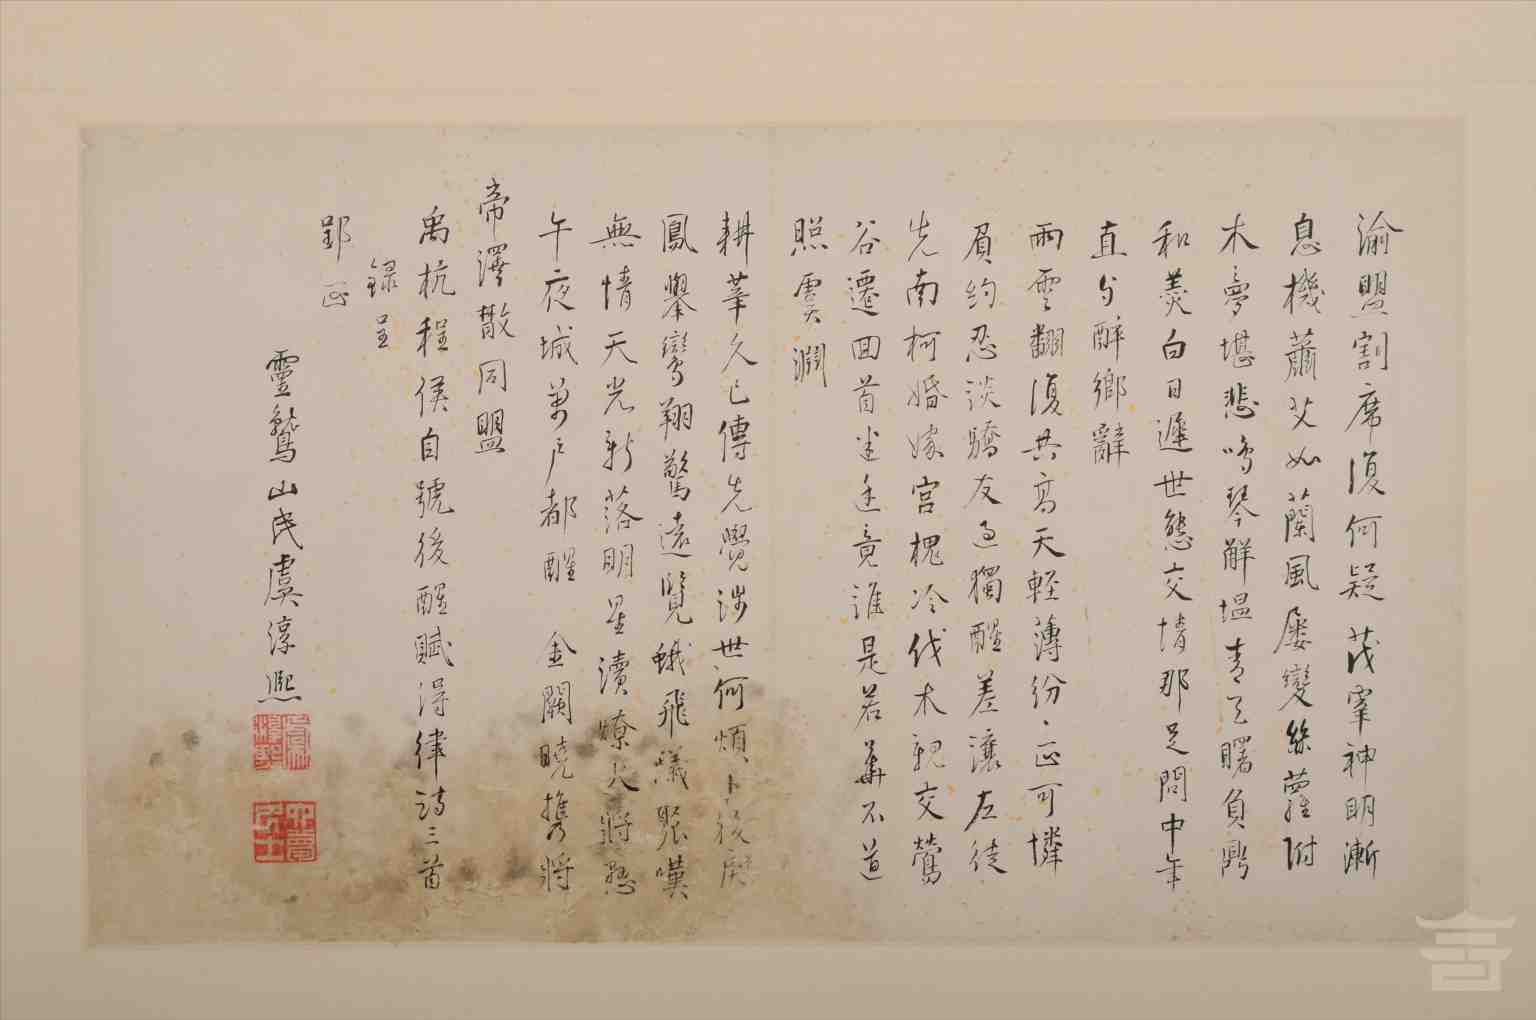 渝盟割席復何疑茂宰神明漸
息機蕭艾如蘭風屢變絲蘿附
木夢堪悲鳴琴解慍青天曙負鼎
和羹白日遲世態交情那足問中年
直分醉鄉辭
雨雲翻復共高天輕薄紛〻正可憐
眉約忍談驕友過獨醒羞讓左徒
先南柯婚嫁宮槐冷伐木親交鶯
谷遷回首迷途竟誰是若華不道
照虞淵
耕莘久已傳先覺涉世何煩卜
鳳舉鸞翔驚遠覽蛾飛蟻聚嘆
無情天光新落明星瀆燎火將懸
午夜城萬戶都醒金闕曉攜將
帝澤散同盟
禹杭程侯自號後醒賦得律詩三首
錄呈
郢正
靈鷲山民虞淳熙
虞淳熙